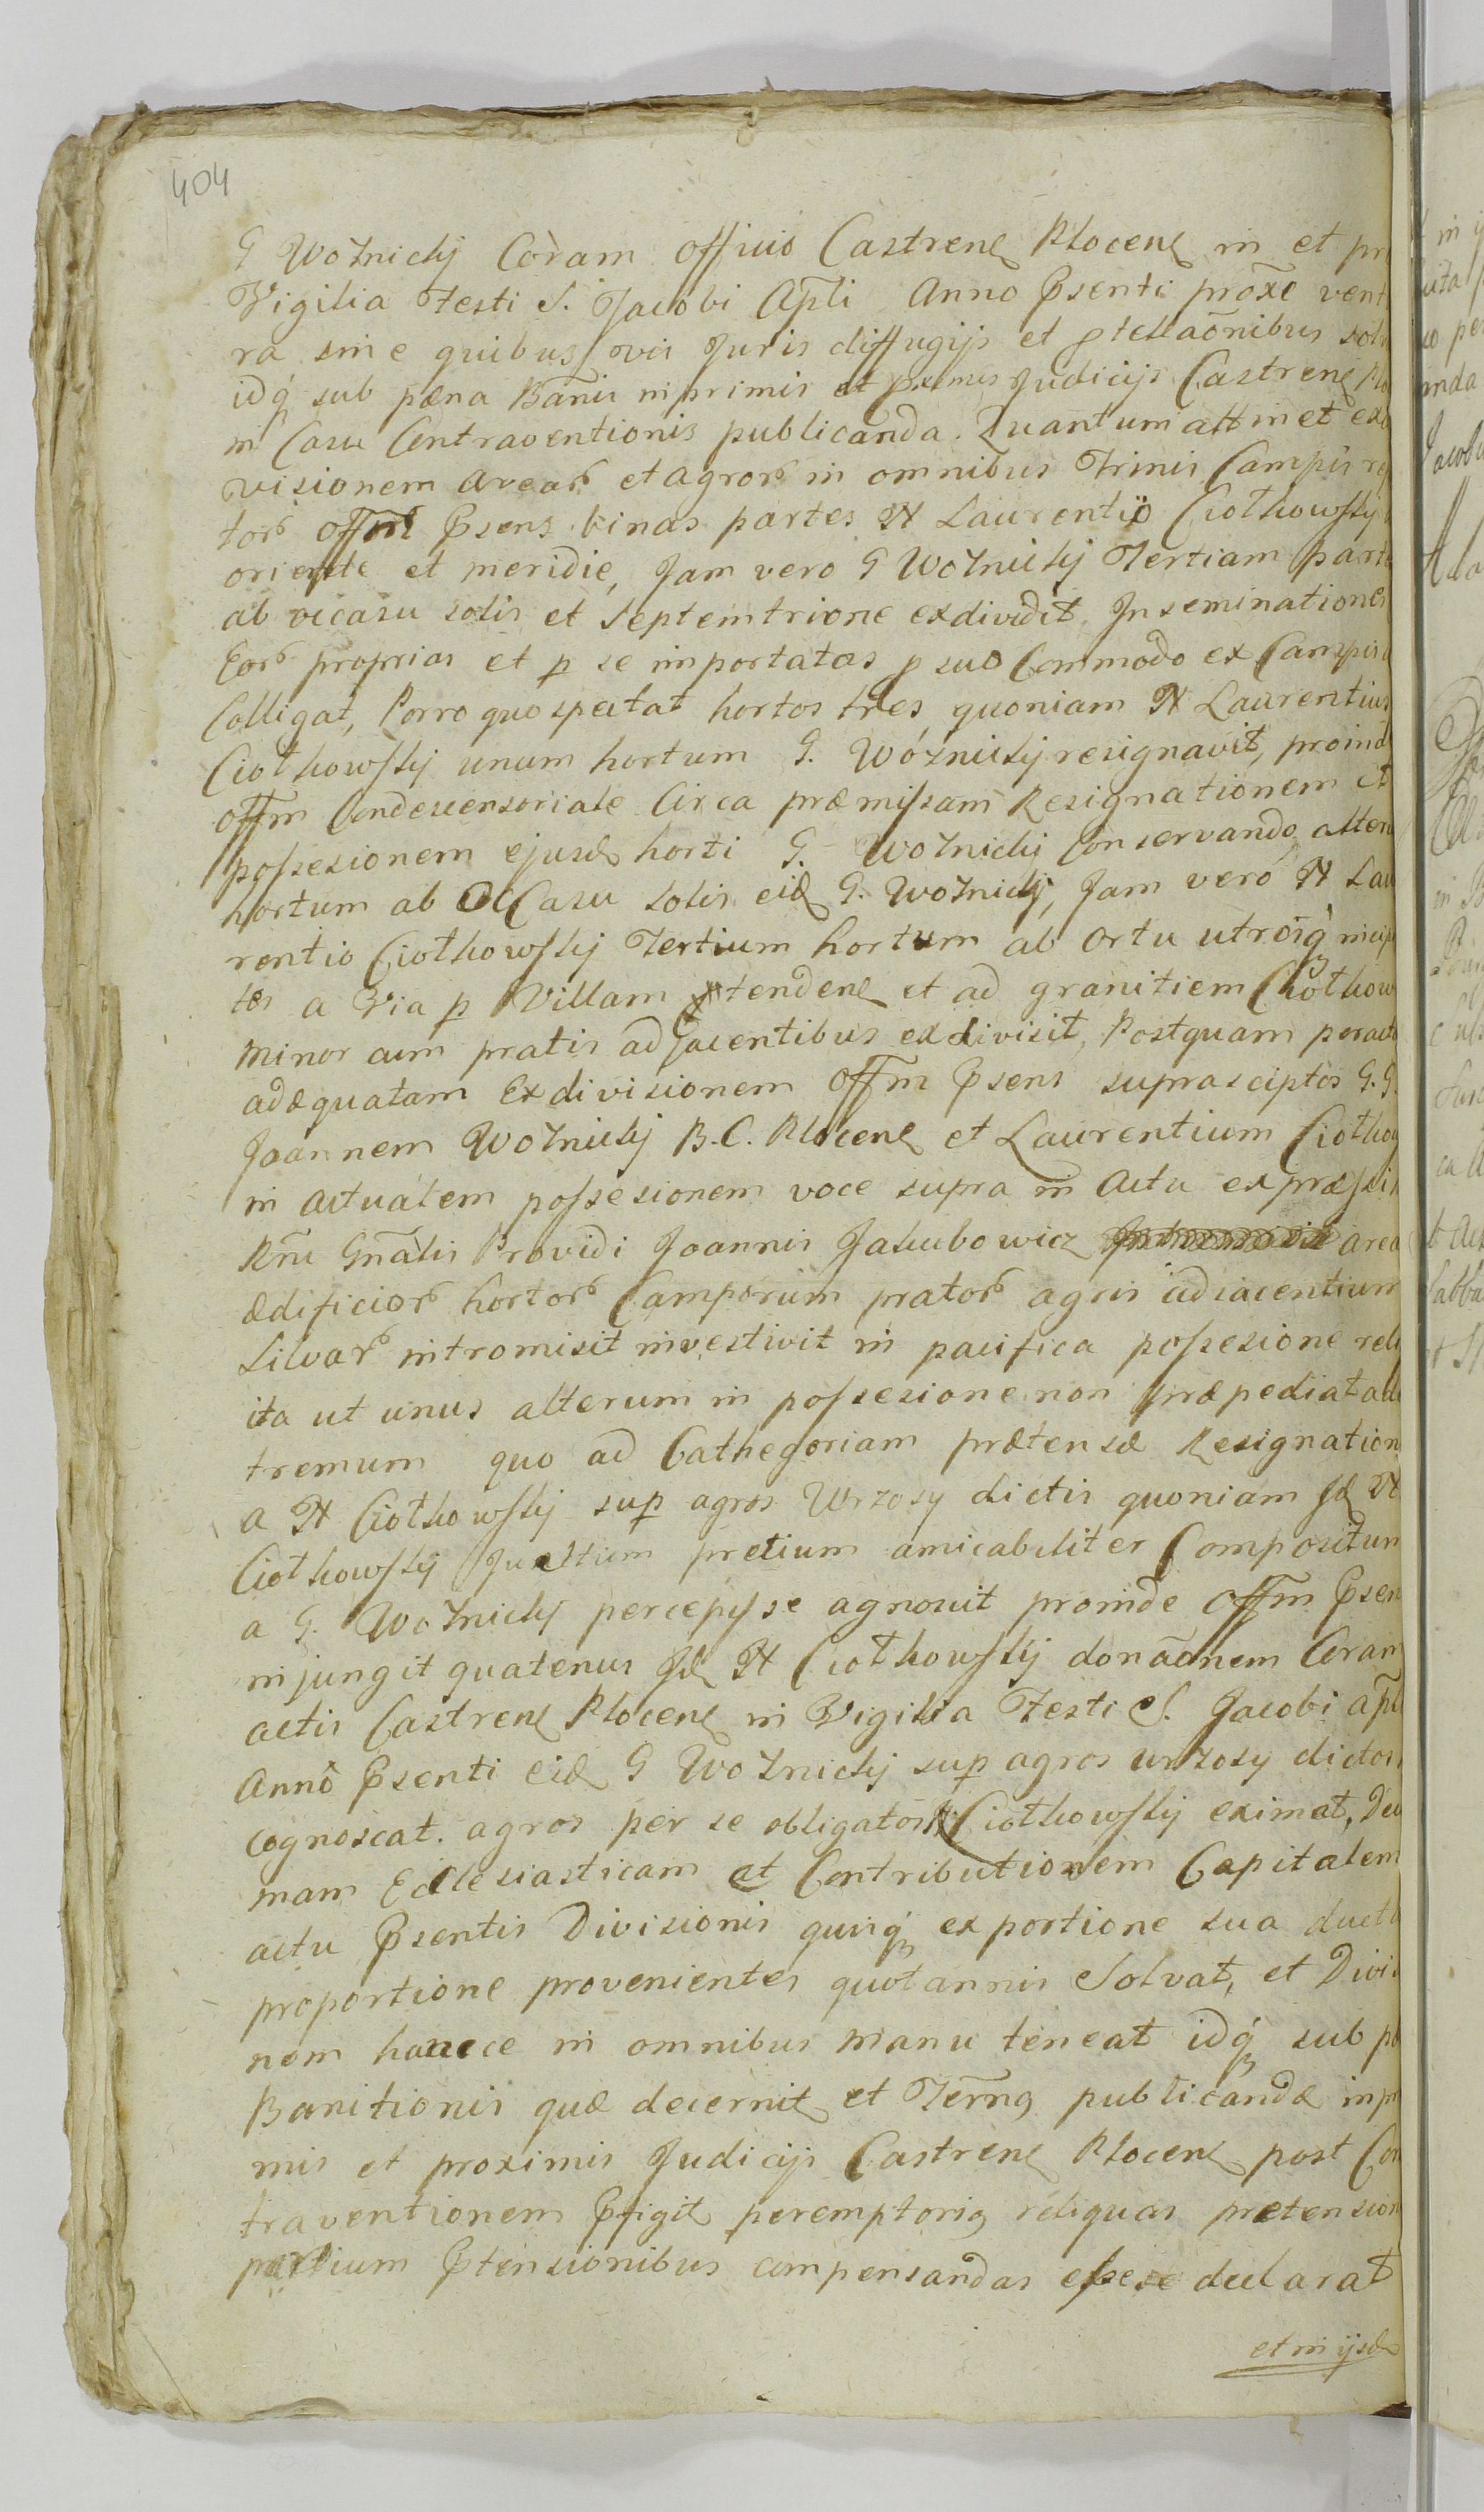 404
G Woznicky Coram Officio Castren Plocen in et pr
Vigilia Festi S. Jacobi Apli Anno Psenti proxe vent
ra sine quibusvis Juris diffugijs et ptellaonibus solv
idq sub pæna Banni in primis et pximis Judicijs Castren Plo
in Casu Contraventionis publicanda. Quantum attinet exd
visionem arear et agror in omnibus Trinis Campis
tor offm Psens binas partes N Laurentio Ciołkowsky
oriente et meridie, Jam vero G Woznicky Tertiam parte
ab occasu solis et Septemtrione exdividit. Inseminationes
Eor proprias et p se importatas p suo Commodo ex Campis
Colligat, Porro quo spectat hortos tres, quoniam N Laurentius
Ciołkowsky unum hortum G. Woznicky resignavit, proind
offm Condescensoriale Circa præmissam Resignationem et
possesionem ejusd horti G. Woznicky Conservando, alter
hortum ab OcCasu Solis eid G. Woznicky, Jam vero N Lau
rentio Ciołkowsky Tertium hortum ab ortu utroiq incip
tes a Via p Villam Extenden et ad granitiem Ciołkow
Minor cum pratis adjacentibus exdivisit, Postquam peract
adæquatam Exdivisionem Offm Psens suprasciptos G.G.
Joannem Woznicky B.C. Plocen et Laurentium Ciołkow
in actualem possesionem voce supra in Actu expræssi
Rni Gnalis Providi Joannis Jakubowicz area
ædificior hortor Camporum prator agris adiacentium
Silvar intromisit investivit in pacifica possesione reli
ita ut unus alterum in possesione non præpediat
tremum quo ad Cathegoriam prætensæ Resignation
a N Ciołkowsky sup agros Wrzosy dictis quoniam Jd N
Ciołkowsky Justum pretium amicabiliter Compositum
a G. Woznicky percepisse agnovit proinde Offm Psen
injungit quatenus Jd N Ciołkowsky donaonem Coram
actis Castren Plocen in Vigilia Festi S. Jacobi apli
Anno Psenti eid G Woznicky sup agros wrzosy dictos
cognoscat. agros per se obligatos N Ciołkowsky eximat, Deci
mam Ecclesiasticam et Contributionem Capitalem
actu Psentis Divisionis quisq ex portione sua ducta
proportione provenientes quotannis Solvat, et Divisi
nem hancce in omnibus manu teneat idq sub pæ
Banitionis quæ decernit et Termg publicandæ in pri
mis et proximis Judicijs Castren Plocen post Con
traventionem Pfigit peremptorig reliquas pretension
partium Ptensionibus compensandas esse declarat
et in ijsd